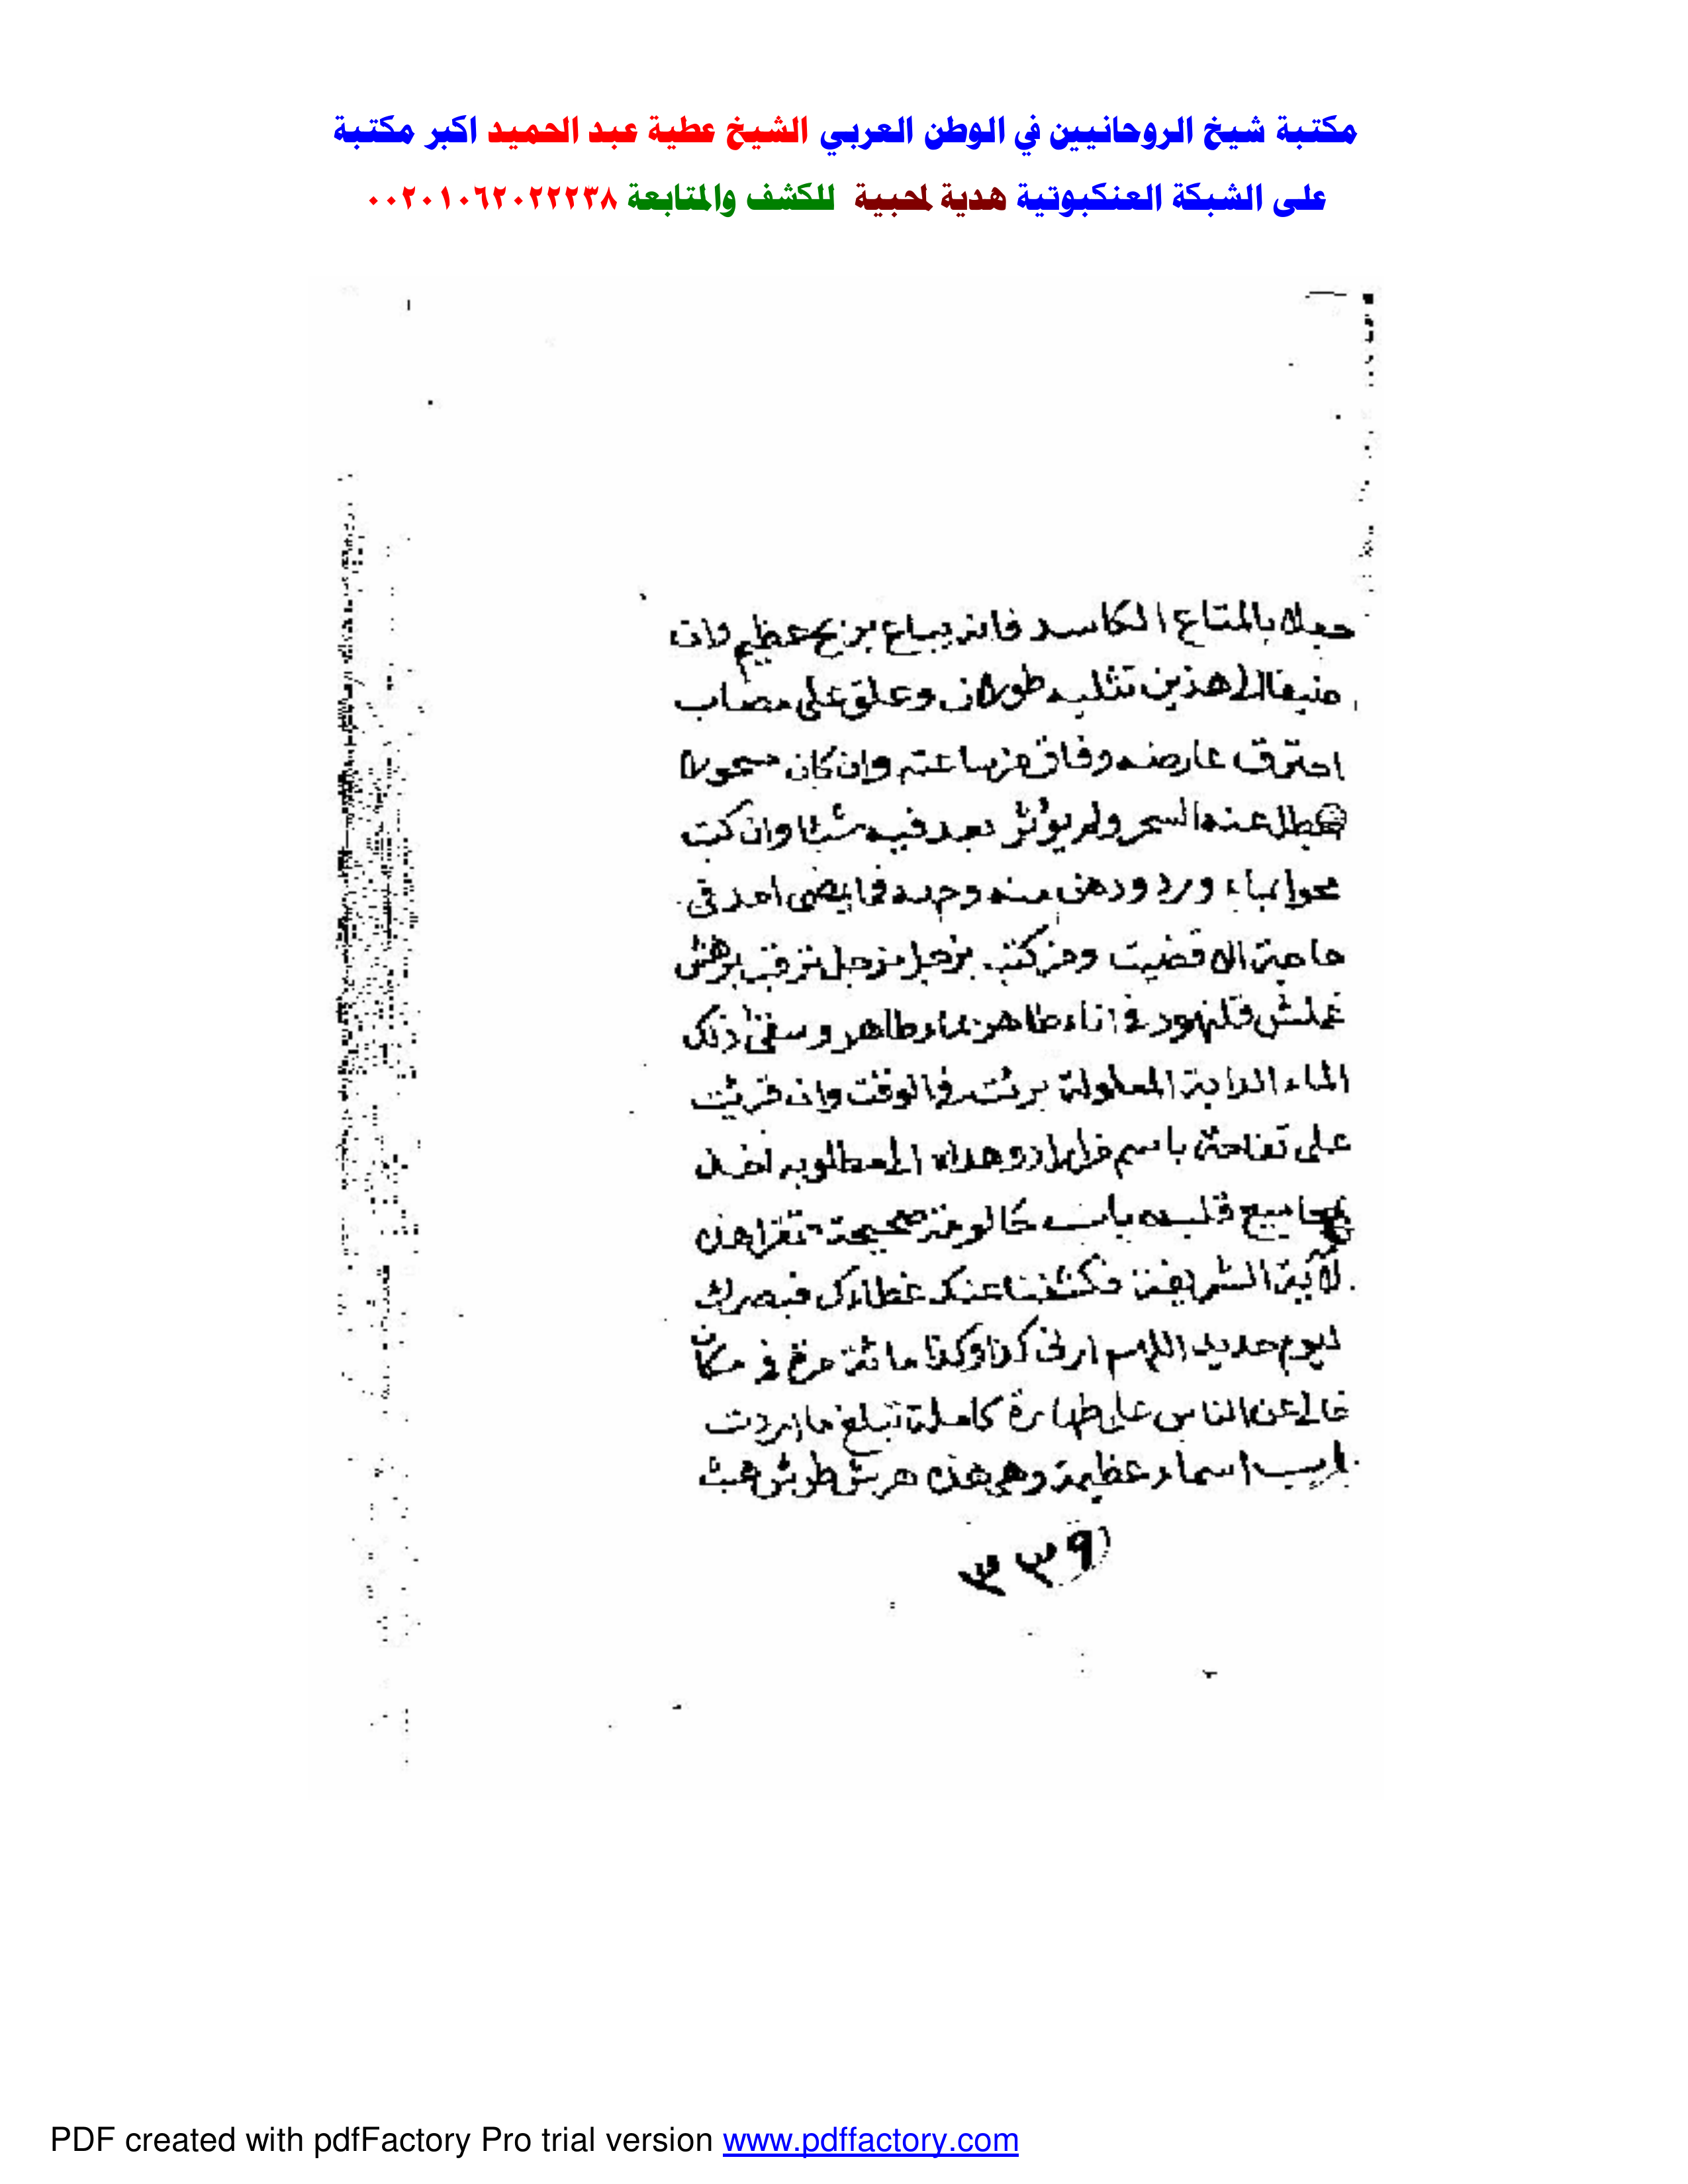 مكتبة شيخ الروحانيين في الوطن العربي الشيخ عطية عبد الحميد اكبر مكتبة
على الشبكة العنكبوتية هدية لمحبية للكشف والمتابعة ٠٠٢٠١٠٦٢٠٢٢٢٣٨
بالمتاع الكاسد فانه يباع بربح عظيم وان
تثليه طوران وعلق على مصاب
احترق عارضه وفاق من ساعته وان كان مسحورا
بطل عنه السحر ولم يؤثر بعد فيه شيا وان كتب
بماء ورد ودهن منه وجهه فما يضى احد فى
حاجة الا قضيت ومن كتب بزجل بزجل ترقب برهش
غلمش قلنهود فى اناء طاهر بماء طاهر وسقى ذلك
الماء الدابة المعلولة برئت فى الوقت وان قريت
على تفاحة باسم من اراد وهداه الى مطلوبه اخذ
بمجاميع قلبه باب صحيحة تقرا هذه
الاية الشريفة فكشفنا عنك غطاءك فبصرك
ليوم حديد اللهم ارنى كذا وكذا مائة مرة فى مكان
خالى عن الناس على طهارة كاملة تبلغ ما اردت
باب اسماء عظيمة وهى هذه هرش طرش
٣٣٩
PDF created with pdfFactory Pro trial version www.pdffactory.com